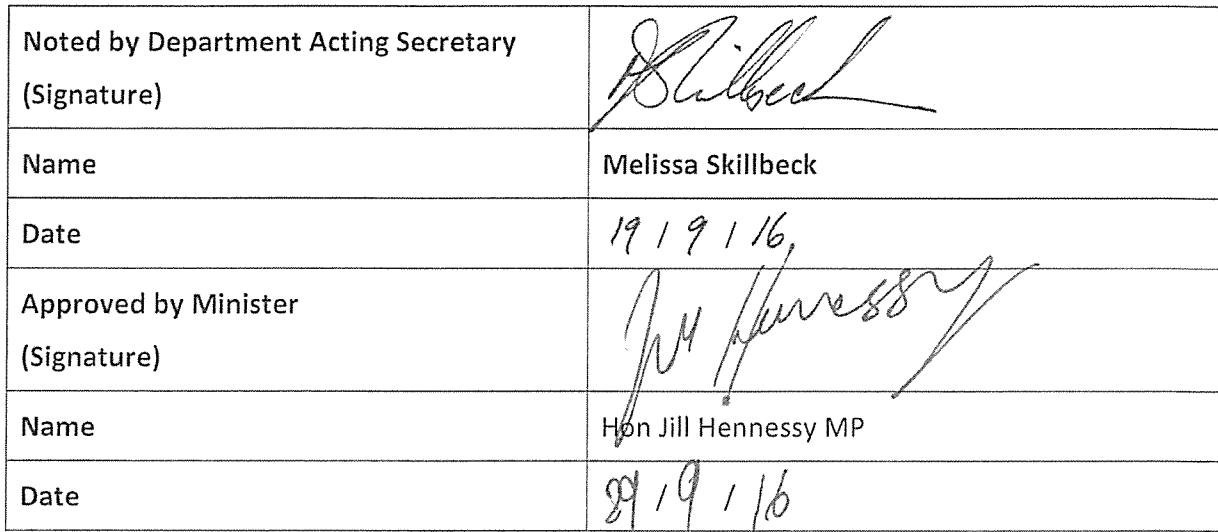 Noted by Department Acting Secretary
(Signature)
MSkillbeck
Name
Melissa Skillbeck
Date
19 / 9 / 16
Approved by Minister
(Signature)
Jill Hennessy
Name
Hon Jill Hennessy MP
Date
29 / 9 / 16